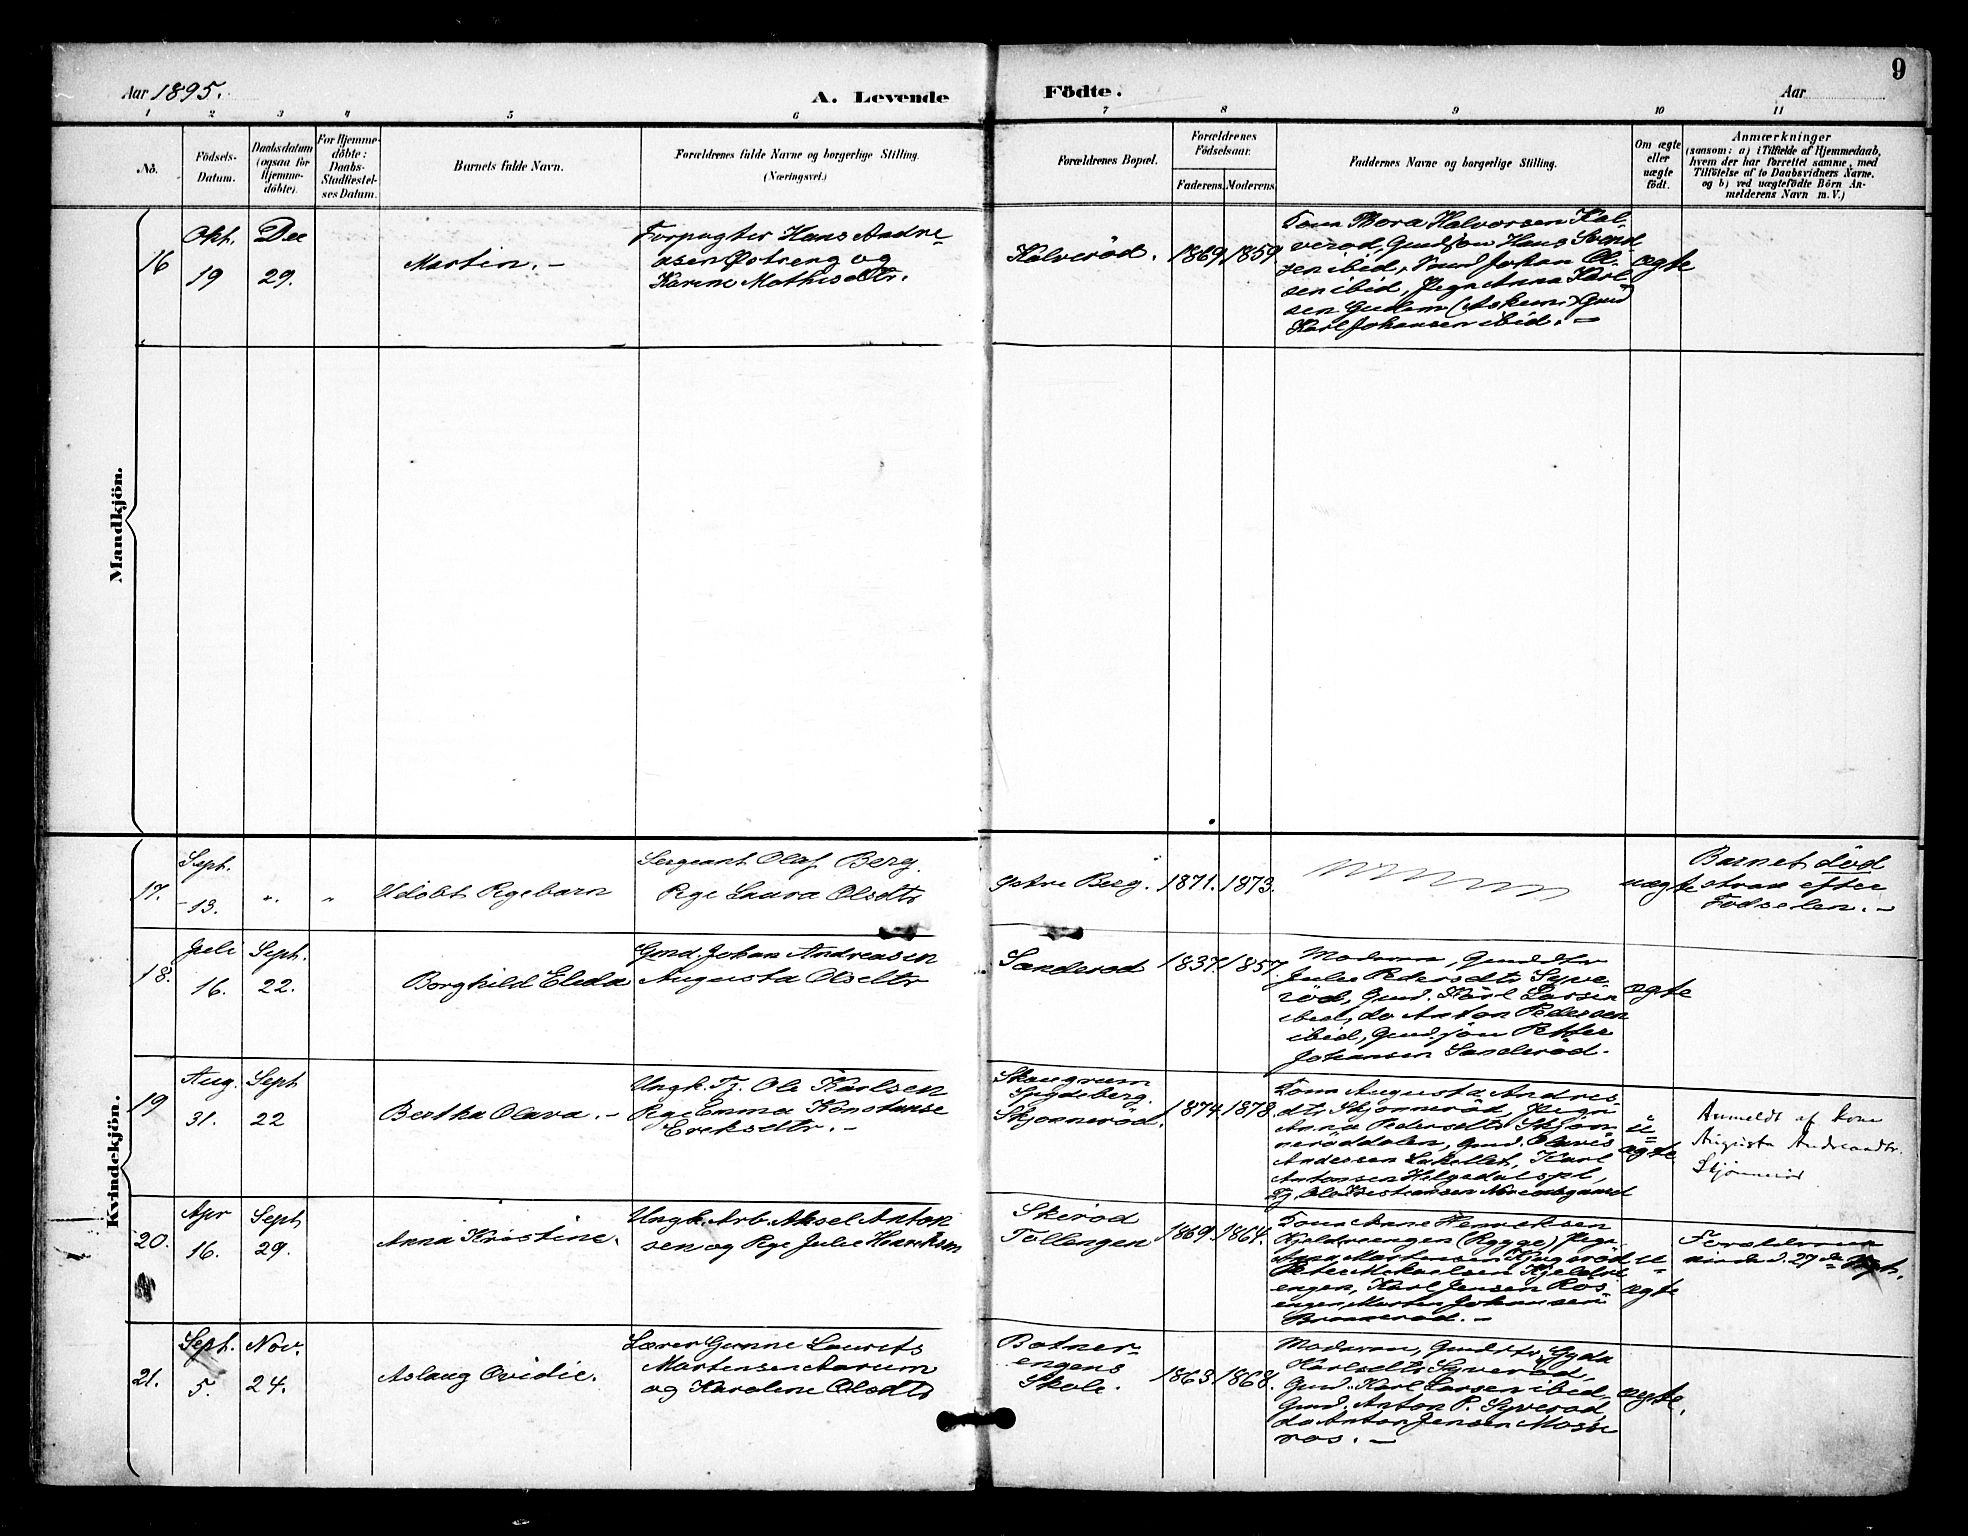 Aar 1895.
A. Levende
Födte.
Aar
9
1
2
3
4
5
6
7
8
9
10
11
No.
Födsels-
Datum.
Daabsdatum
(ogsaa for
Hjemme-
döbte).
For Hjemme-
döbte:
Daabs-
Stadfæstel-
ses Datum.
Barnets fulde Navn.
Forældrenes fulde Navne og borgerlige Stilling.
(Næringsvei.)
Forældrenes Bopæl.
Forældrenes
Födselsaar.
Faderens.
Moderens.
Faddernes Navne og borgerlige Stilling.
Om ægte
eller
uægte
födt.
Anmærkninger
(saasom: a) i Tilfælde af Hjemmedaab,
hvem der har forrettet samme, med
Tilföielse af to Daabsvidners Navne.
og b) ved uægtefödte Börn An-
melderens Navn m. V.)
Mandkjön.
16
Okt.
19
Dec
29.
Martin. –
Forpagter Hans Andre-
asen Østreng og
Karine Mathisdtr.
Kalveröd.
1869.
1859.
Kona Thora Halvorsen Kal-
veröd, Gaardm Hans Svend
sen ibid, Johan Ol-
sen ibid, Pige Anna Karl
sen (Askim)
Karl Johansen ibid. –
ægte
Kvindekjön.
17.
Sept.
13.
"
"
Udöbt Pigebarn
Sergeant Olaf Berg.
Pge Laura Olsdtr
Østre Berg.
1871.
1873.
uægte
Barnet död
strax efter
Födselen. –
18.
Juli
16.
Sept.
22.
Borghild Elida
Gmd. Johan Andreasen
Augusta Olsdtr
Sanderöd
1837.
1857.
Moderen,
Julie Pedersdtr Syve
röd, Gmd. Karl Larsen
ibid, do Anton Pedersen
ibid, Petter
Johansen Sanderöd.
ægte
19
Aug.
31.
Sept
22
Bertha Olava. –
Ungk. Tj. Ole Karlsen
Pge Emma Konstanse
Eriksdtr. –
Skaugrum
Spydeberg.
Skjönneröd.
1874.
1878.
Kona Augusta Andreas-
dtr Skjönneröd, Pigen
Anna Pedersdtr Skjön
neröddalen, Gmd. Olavis
Andersen Karl
Antonsen
Tj. Ole Kristiansen
u=
ægte
Anmeldt af Kone
Augusta Andreasdtr.
Skjönneröd
20.
Apr
16.
Sept
29.
Anna Kristine.
Ungk. Arb. Aksel Anton
sen og Pge Julie Henriksen
Skiröd
Tollengen
1869.
1864.
Kona Anne Henriksen
(Rygge) Pigen
Anna Martinsen
Petter Mikaelsen
engen, Karl Jensen Ros-
engen, Martin Johansen
u=
ægte
Forældrene
27de Sept.
21.
Sept.
5
Nov.
24.
Aslaug Ovidie.
Lærer Laurits
Martinsen Aarum
og Karoline Olsdtr
Botner-
engens
Skole.
1863
1868.
Moderen,
Karlsdtr Syveröd,
Gmd. Karl Larsen ibid,
Gmd. Anton P. Syveröd
do Anton Jensen Mosse
ros. –
ægte.